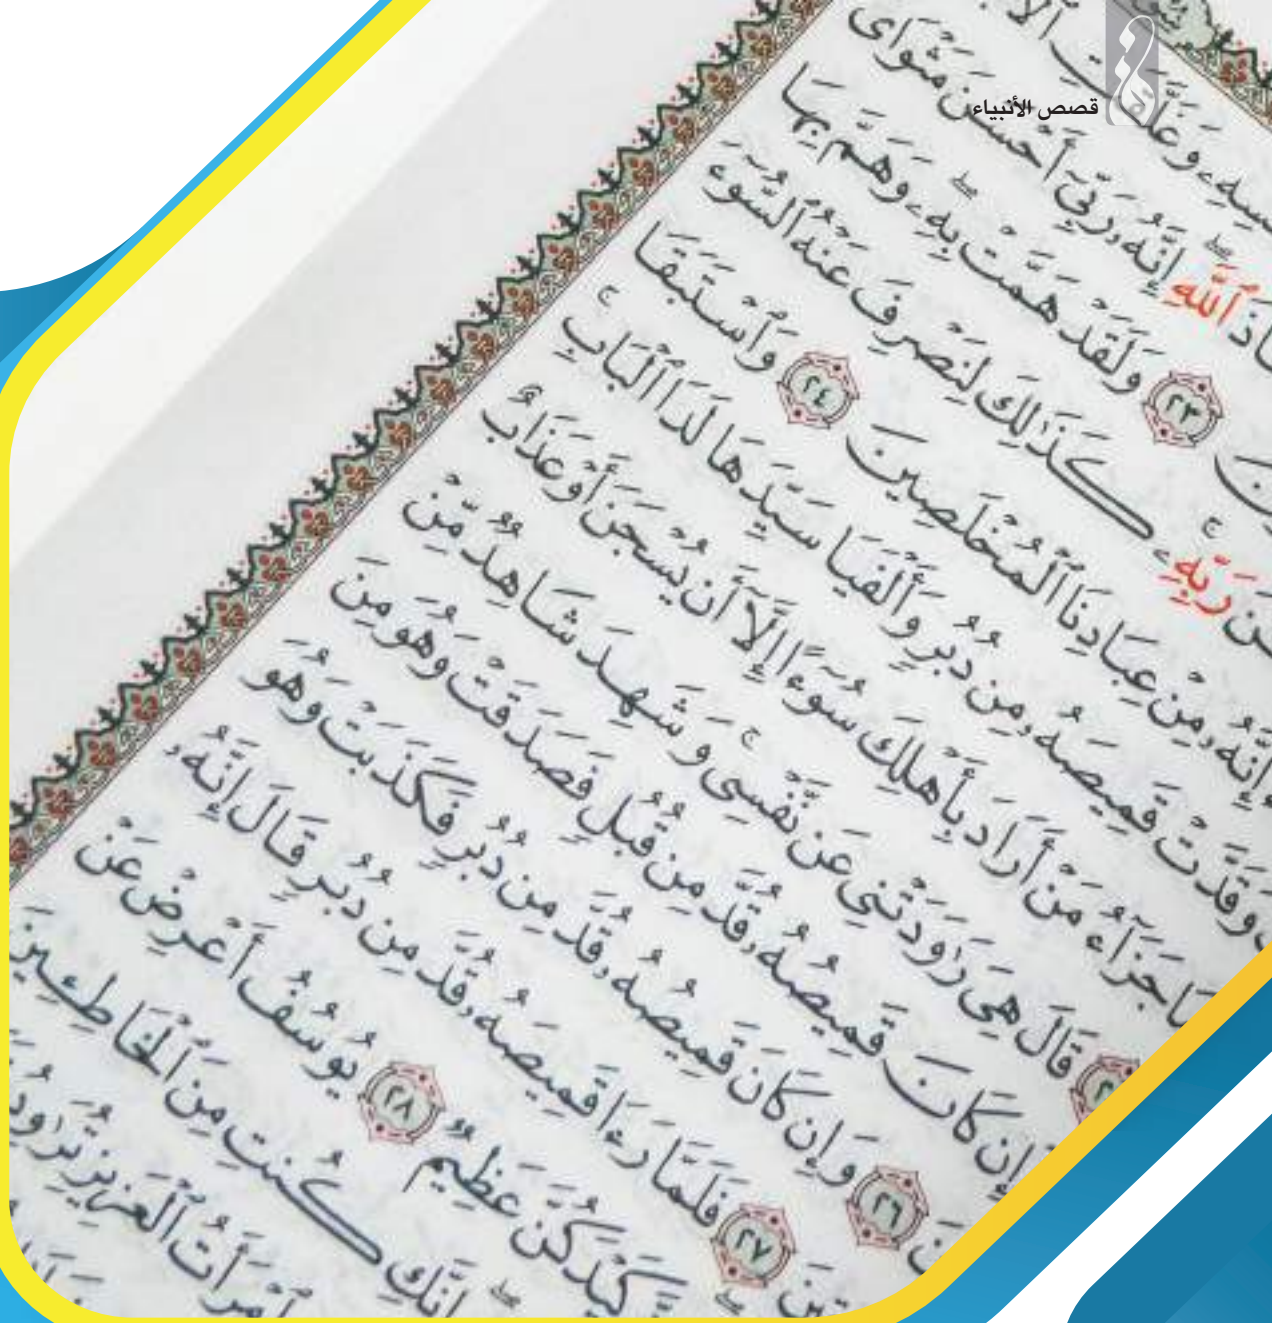 قصص الأنبياء
وَغَلَّقَتِ
ٱللَّهِ إِنَّهُۥ رَبِّىٓ أَحْسَنَ مَثْوَاىَ
٢٣ وَلَقَدْ هَمَّتْ بِهِۦ وَهَمَّ بِهَا
رَبِّهِۦ ۚ كَذَٰلِكَ لِنَصْرِفَ عَنْهُ ٱلسُّوٓءَ
إِنَّهُۥ مِنْ عِبَادِنَا ٱلْمُخْلَصِينَ ٢٤ وَٱسْتَبَقَا
وَقَدَّتْ قَمِيصَهُۥ مِن دُبُرٍ وَأَلْفَيَا سَيِّدَهَا لَدَا ٱلْبَابِ ۚ
جَزَآءُ مَنْ أَرَادَ بِأَهْلِكَ سُوٓءًا إِلَّآ أَن يُسْجَنَ أَوْ عَذَابٌ
قَالَ هِىَ رَٰوَدَتْنِى عَن نَّفْسِى ۚ وَشَهِدَ شَاهِدٌ مِّنْ
إِن كَانَ قَمِيصُهُۥ قُدَّ مِن قُبُلٍ فَصَدَقَتْ وَهُوَ مِنَ
٢٦ وَإِن كَانَ قَمِيصُهُۥ قُدَّ مِن دُبُرٍ فَكَذَبَتْ وَهُوَ
٢٧ فَلَمَّا رَءَا قَمِيصَهُۥ قُدَّ مِن دُبُرٍ قَالَ إِنَّهُۥ
كَيْدَكُنَّ عَظِيمٌ ٢٨ يُوسُفُ أَعْرِضْ عَنْ
إِنَّكِ كُنتِ مِنَ ٱلْخَاطِـِٔينَ
ٱمْرَأَتُ ٱلْعَزِيزِ